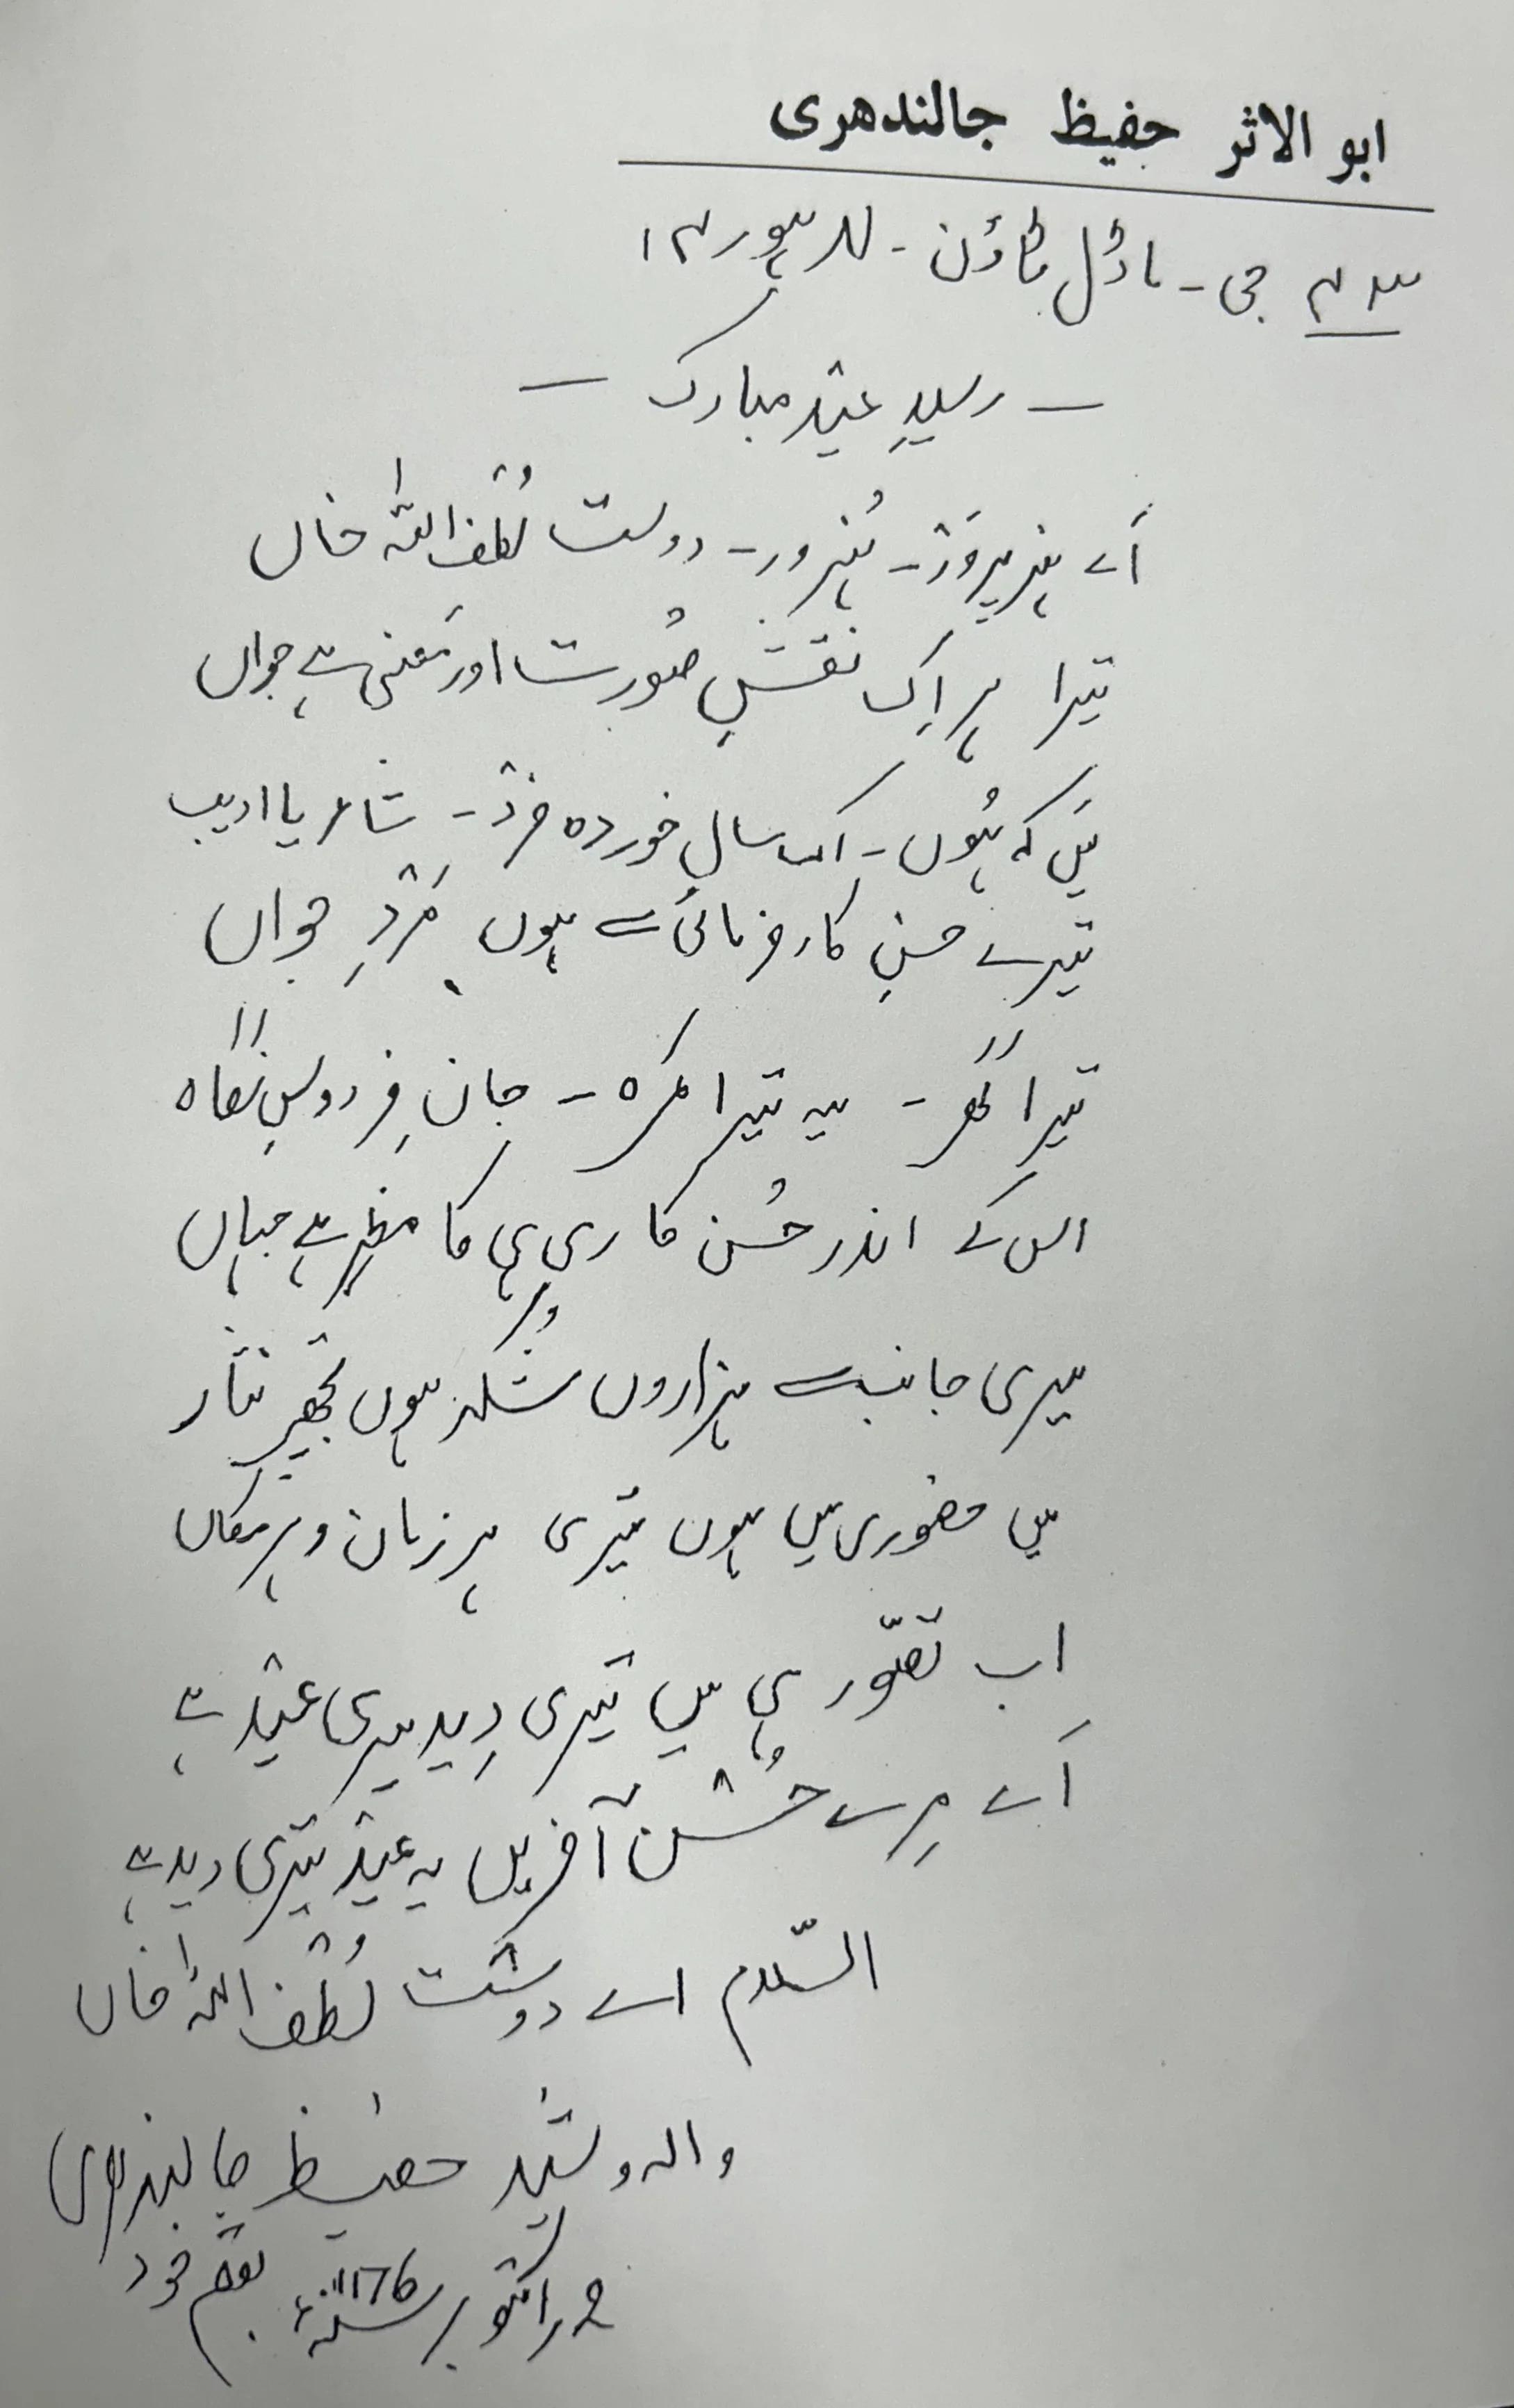 ابو الاثر حفیظ جالندھری
۴۳ جی ۔ ماڈل ٹاؤن ۔ لاہور ۱۴
— رسیدِ عید مبارک —
اَے ہنر پروَر ۔ ہُنرور ۔ دوست لُطف اللہ خاں
تیرا ہر اِک نقشِ صُورت اور مَعنی ہے جواں
مَیں کہ ہُوں ۔ اک سال خوردہ فرد ۔ شاعر یا ادیب
تیرے حسنِ کار فرمائی سے ہوں مَردِ جواں
تیرا گھر ۔ یہ تیرا کمرہ ۔ جانِ فِردوسِ نگاہ
اس کے اندر حُسن کاری ہی کا مظہر ہے جہاں
میری جانب سے ہزاروں شُکر ہوں تجھ پر نثار
میں حضوری میں ہوں تیری ہر زمان و ہر مکاں
اب تصّور ہی میں تیری دِید میری عید ہے
اَے مِرے حُسن آفریں یہ عید تیری دید ہے
السّلام اے دوست لُطف اللہ خاں
والہ و شید حفیظ جالندھری
بقلم خود
۹ر اکتوبر سنہ 76ء